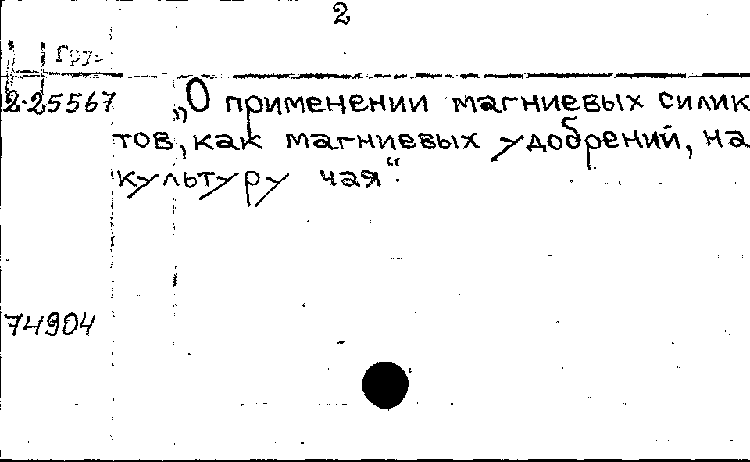 2
Груз
2.25567 „О применении магниевых силик
тов, как магниевых удобрений, на
культуру чая“.
74904